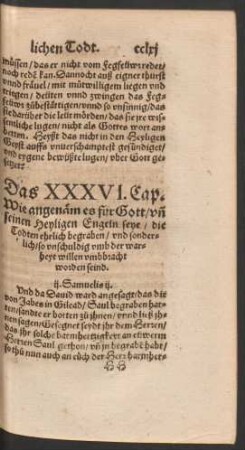 lichen Todt. cclxj
müssen/das er nicht vom Fegfeüwr redet/
noch redẽ kan. Dannocht auß eigner thürst
vnnd fräuel/ mit mütwilligem liegen vnd
triegen/ dellten vnnd zwingen das Fegf
feüwr zübestättigen/vnnd so vnsinnig/das
sie darüber die leüt mörden/das sie jre wis
sentliche lugen/ nicht als Gottes wort ans
betten. Heyst das nicht in den Heyligen
Geyst auffs vnuerschamptest gesündiget/
vnd eygene bewüßte lugen/ vber Gott ge
setzet?
Das XXXVI. Cap.
Wie angenäm es für Gott/ vñ
seinen Heyligen Engeln seye/ die
Todten ehrlich begraben/ vnd sonder-
lich/so vnschuldig vmb der war-
heyt willen vmbbracht
worden seind.
ij. Samuelis ij.
Vnd da Dauid ward angesagt/das die
von Jabes in Gilead/ Saul begraben hat-
ten/sandte er botten zů jhnen/ vnnd ließ jh-
nen sagen/Gesegnet seydt jhr dem Herren/
das jhr solche barmhertzigkeyt an ewerm
Herren Saul gethon/ vñ jn begrabt habt/
so thü nun auch an eüch der Herr barmher-